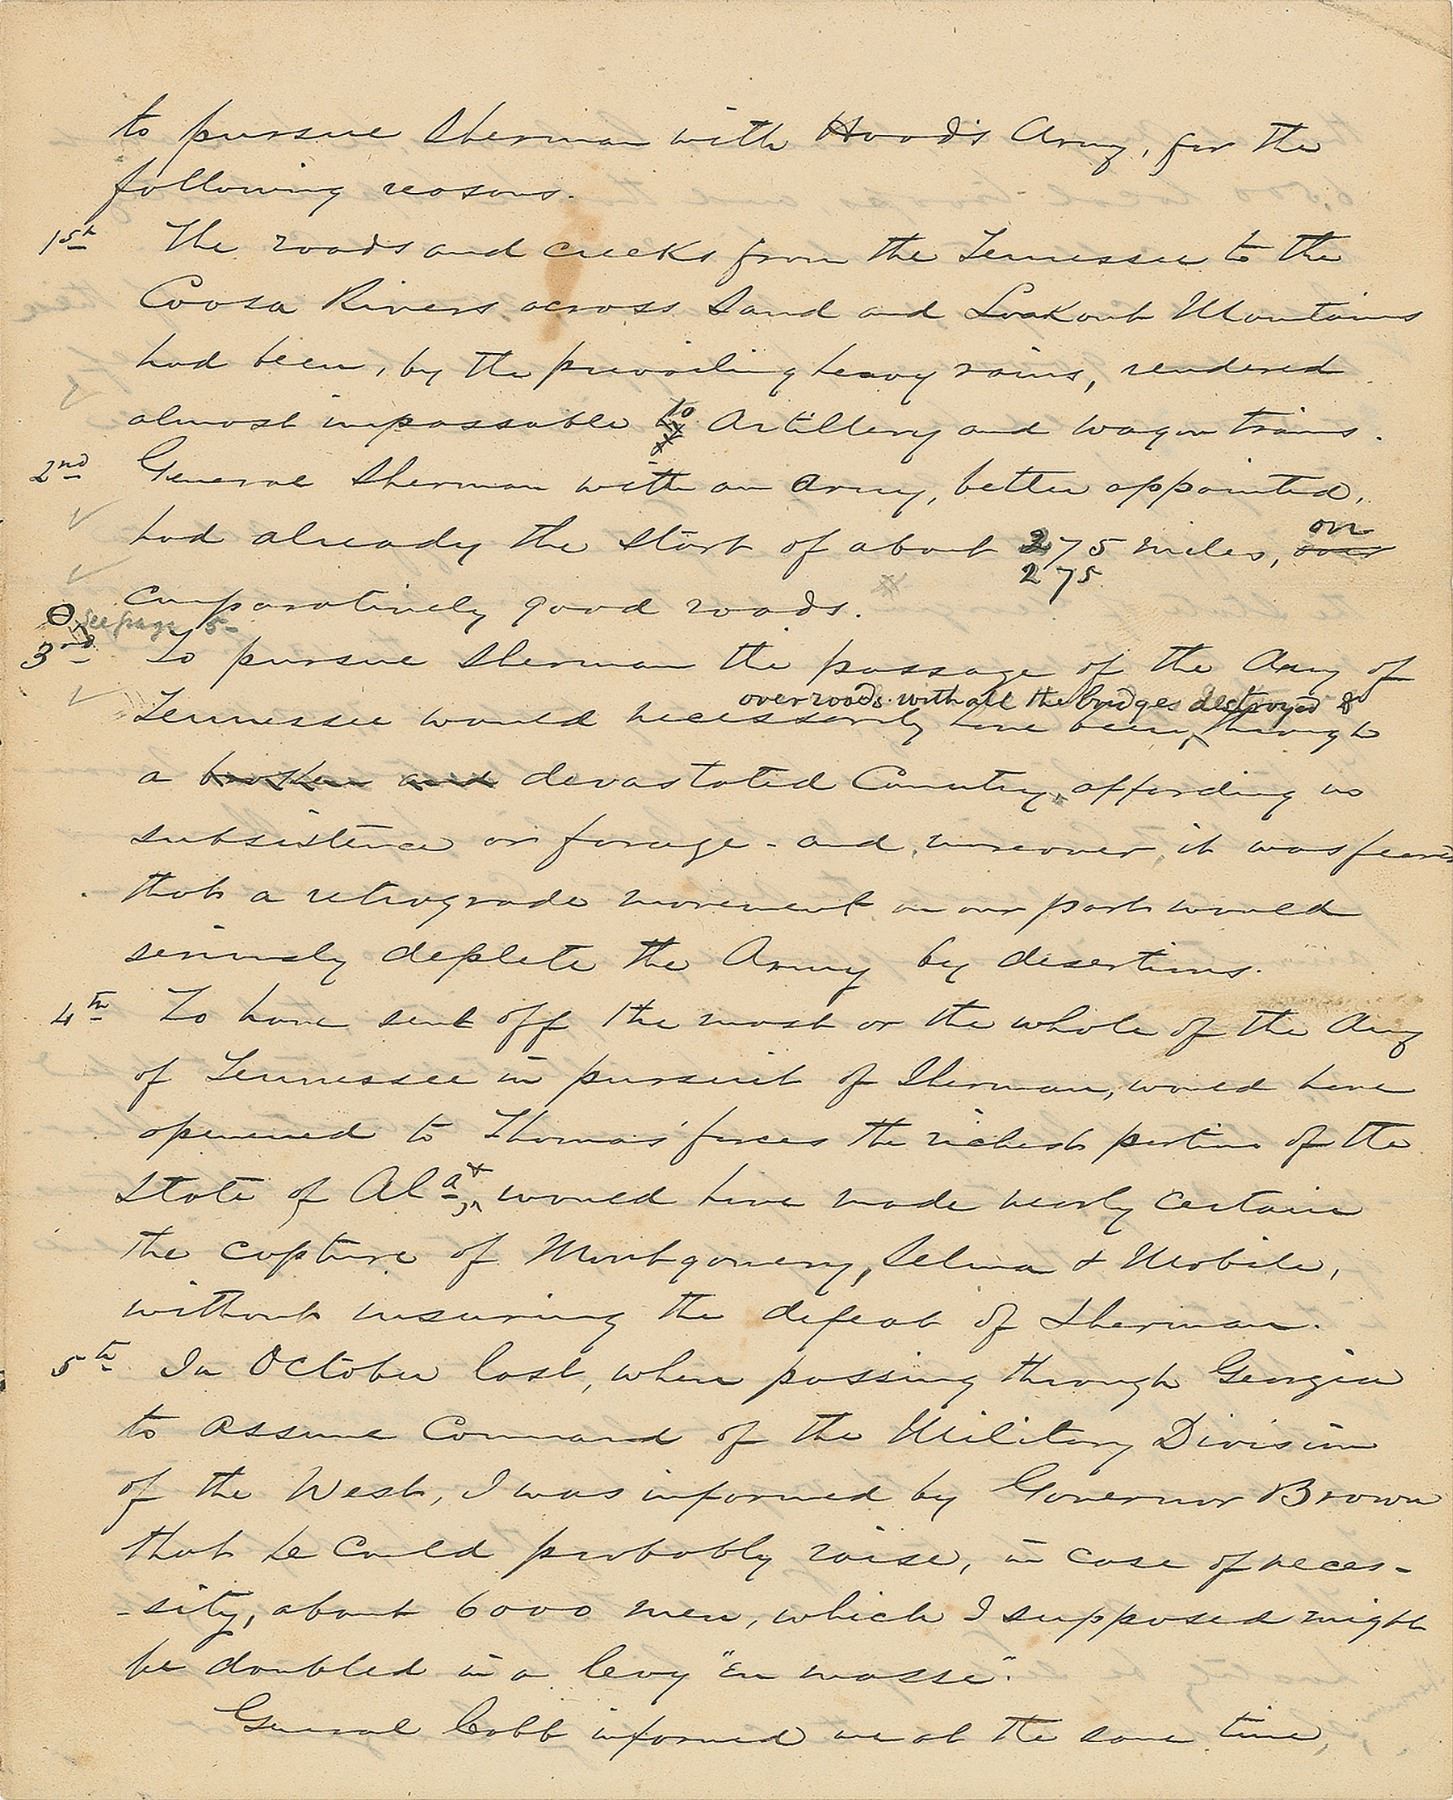 to pursue Sherman with Hood's Army, for the
following reasons.
1st The roads and creeks from the Tennessee to the
Coosa Rivers, across Sand and Lookout Mountains
had been, by the prevailing heavy rains, rendered
almost impassable to Artillery and wagon trains.
2nd General Sherman with an Army, better appointed,
had already the start of about 275 miles, over on
275
comparatively good roads.
See page 5-
3rd To pursue Sherman the passage of the Army of
over roads with all the bridges destroyed &
Tennessee would necessarily have been, through
a broken and devastated Country, affording no
subsistence or forage - and, moreover, it was feared
that a retrograde movement on our part would
seriously deplete the Army by desertions.
4th To have sent off the most or the whole of the Army
of Tennessee in pursuit of Sherman, would have
openned to Thomas' forces the richest portion of the
State of Ala, would have made nearly certain
the capture of Montgomery, Selma & Mobile,
without insuring the defeat of Sherman.
5th In October last, when passing through Georgia
to assume Command of the Military Division
of the West, I was informed by Governor Brown
that he could probably raise, in case of neces-
-sity, about 6000 men, which I supposed might
be doubled in a levy "En masse".
General Cobb informed me at the same time,